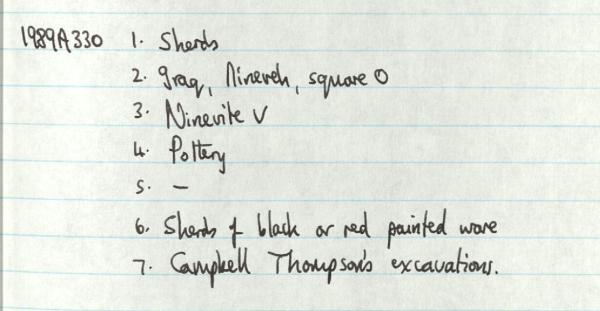 1989A330 1. Sherds
2. Iraq, Nineveh, square O
3. Ninevite V
4. Pottery
5. —
6. Sherds of black or red painted ware
7. Campbell Thompson's excavations.